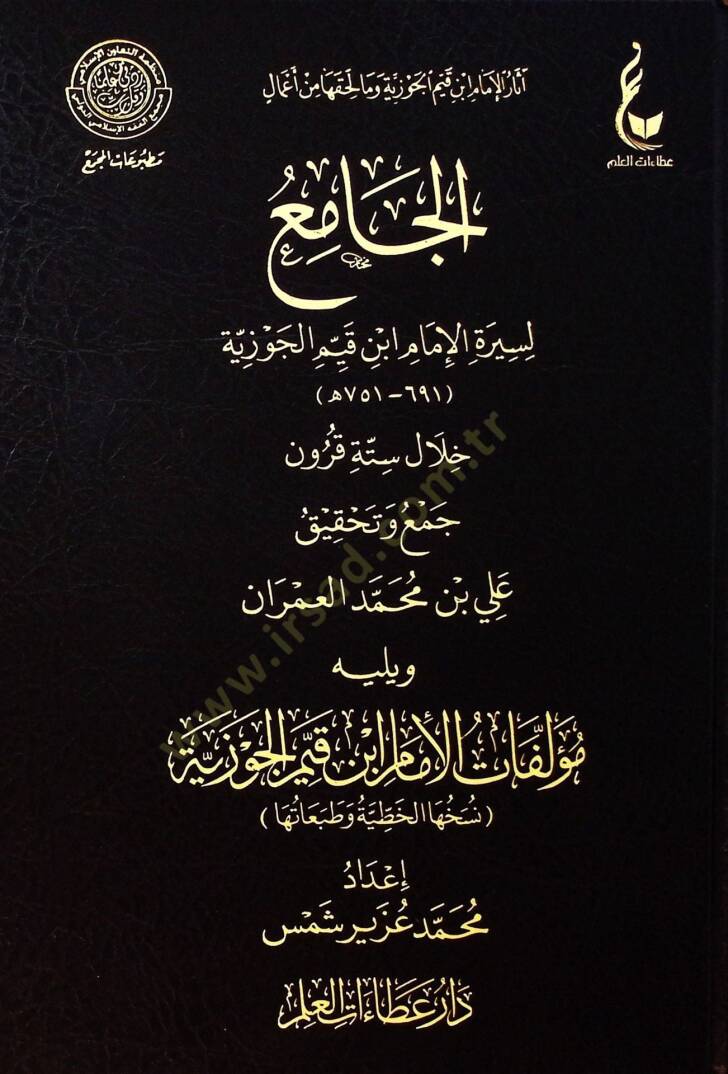 آثَارُ الإِمَامِ ابْنِ قَيِّمِ الجَوْزِيَّةِ وَمَا لَحِقَهَا مِنْ أَعْمَالٍ
منظمة التعاون الإسلامي
مجمع الفقه الإسلامي الدولي
مَطبُوعَات المجمَع
عطاءات العلم
الجَامِعُ
لِسِيرَةِ الإِمَامِ ابْنِ قَيِّمِ الجَوْزِيَّة
(٦٩١-٧٥١هـ)
خِلَال سِتَّةِ قُرُون
جَمْعُ وَتَحْقِيْقُ
عَلِي بْن مُحَمَّد العِمْرَان
ويليه
مُؤَلَّفَاتُ الإِمَامِ ابْنِ قَيِّمِ الجَوْزِيَّةِ
(نُسَخُهَا الخَطِّيَّةُ وَطَبَعَاتُهَا)
إِعْدَادُ
مُحَمَّد عُزَير شَمْس
دَارُ عَطَاءَاتِ العِلْمِ
www.irsad.com.tr